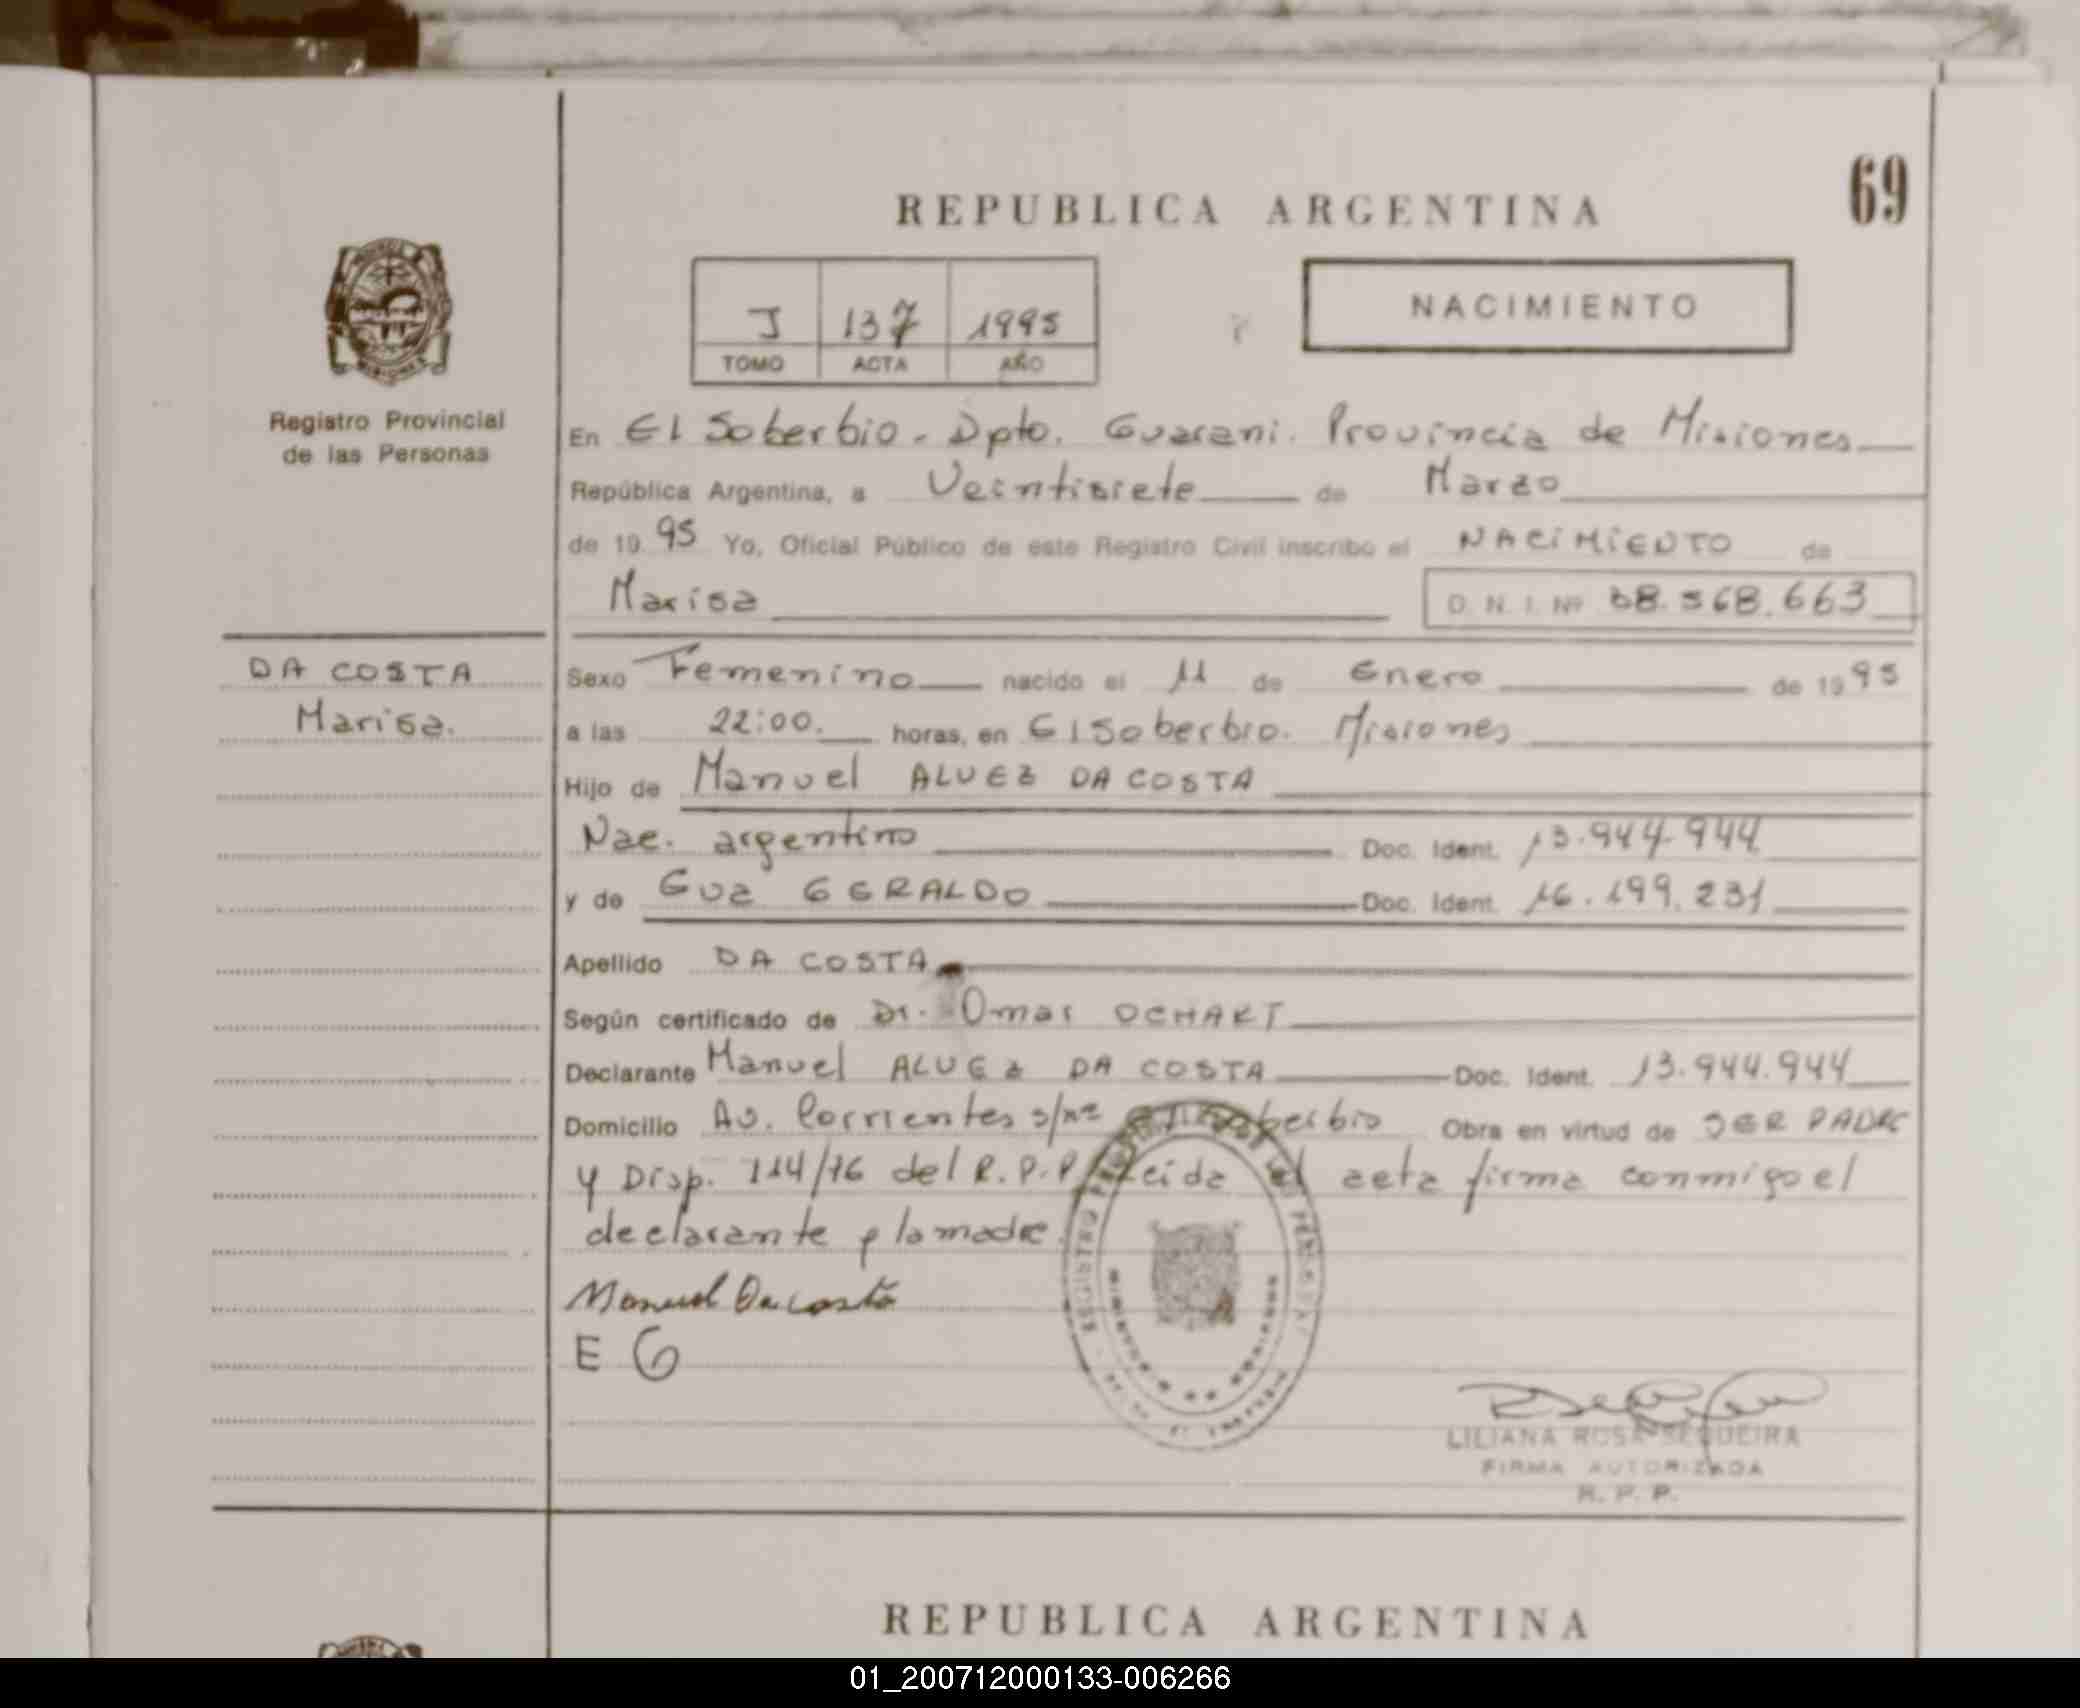 69
REPUBLICA ARGENTINA
J 137 1995
TOMO ACTA AÑO
NACIMIENTO
Registro Provincial
de las Personas
En El Soberbio - Dpto. Guarani. Provincia de Misiones
República Argentina, a Veintisiete de Marzo
de 1995 Yo, Oficial Público de este Registro Civil inscribo el NACIMIENTO de
Marisa D. N. I. Nº 38.568.663
DA COSTA
Marisa.
Sexo Femenino nacido el 11 de Enero de 1995
a las 22:00. horas, en El Soberbio. Misiones
Hijo de Manuel ALVEZ DA COSTA
Nac. argentino Doc. Ident. 13.944.944
y de GERALDO Doc. Ident. 16.199.231
Apellido DA COSTA
Según certificado de Dr. Omar OCHART
Declarante Manuel ALVEZ DA COSTA Doc. Ident. 13.944.944
Domicilio Av. Corrientes s/nº El Soberbio Obra en virtud de SER PADRE
y Disp. 114/76 del R.P.P. Leida el acta firma conmigo el
declarante y la madre
Manuel Da Costa
E G
LILIANA ROSA SEQUEIRA
FIRMA AUTORIZADA
R. P. P.
REPUBLICA ARGENTINA
01_200712000133-006266